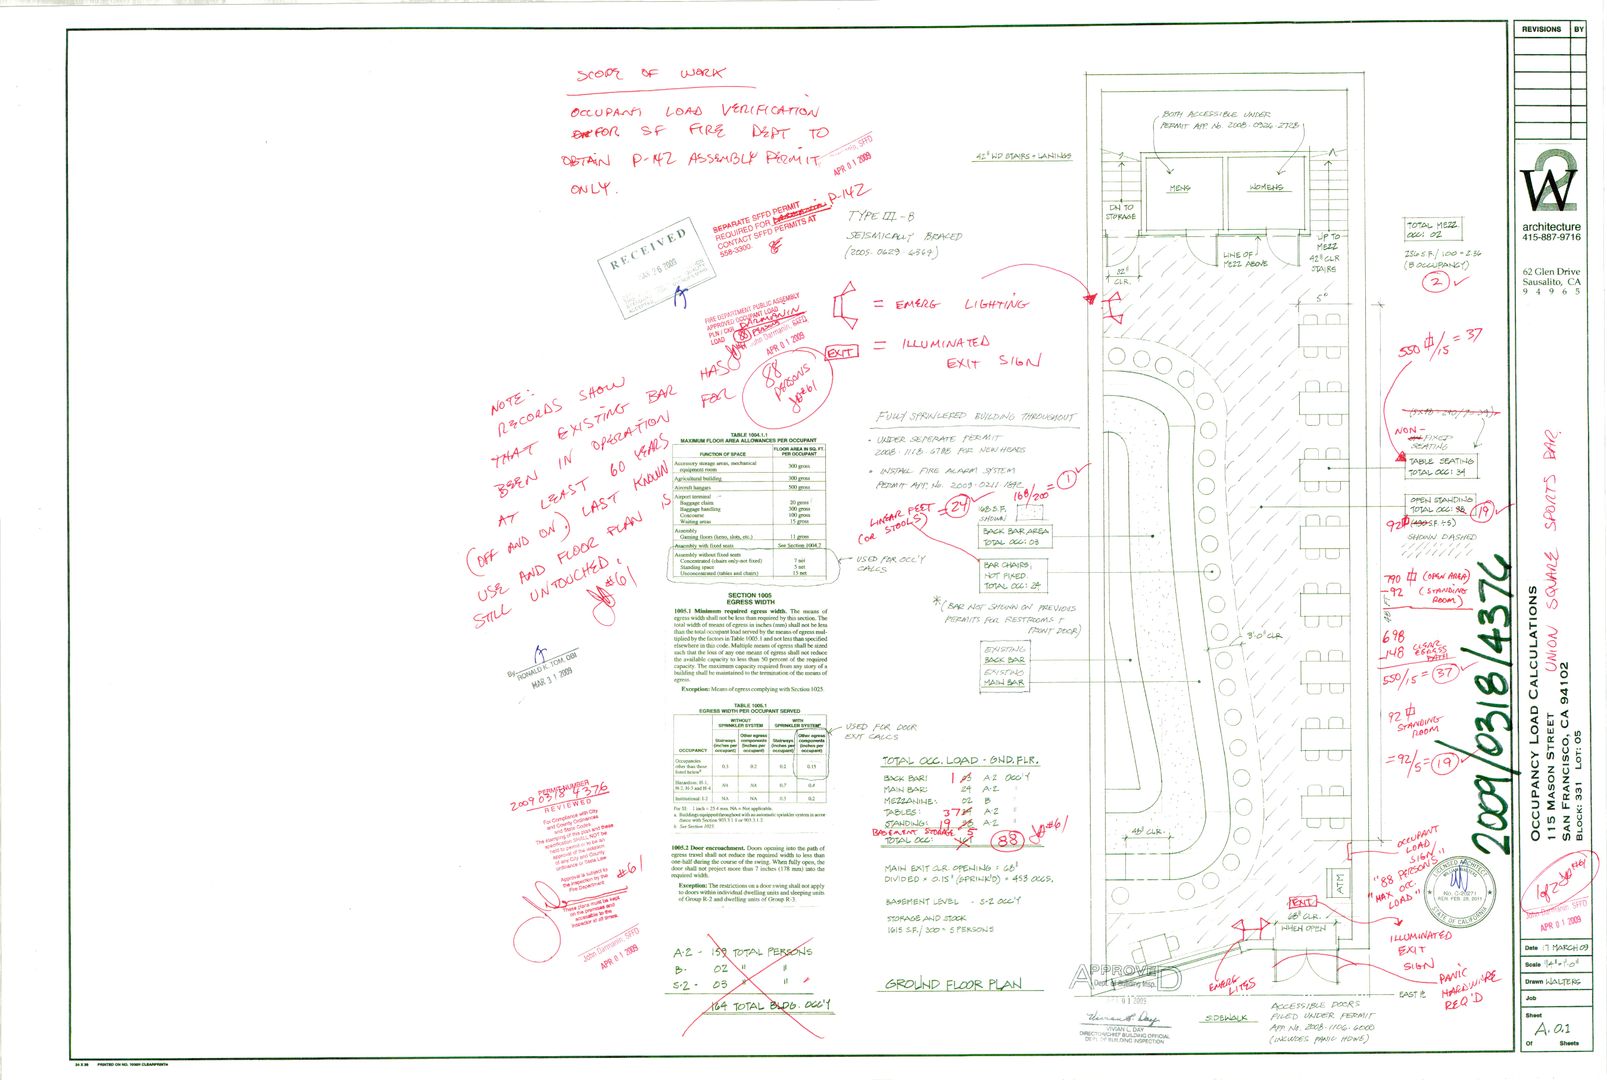 SCOPE OF WORK
OCCUPANT LOAD VERIFICATION
FOR SF FIRE DEPT TO
OBTAIN P-142 ASSEMBLY PERMIT
ONLY.
APR 01 2009
SEPARATE SFFD PERMIT
REQUIRED FOR P-142
CONTACT SFFD PERMITS AT
558-3300.
RECEIVED
TYPE III-B
SEISMICALLY BRACED
FIRE DEPARTMENT PUBLIC ASSEMBLY
APPROVED OCCUPANT LOAD
LOAD 88 PERSONS
John Darmanin, SFFD
APR 01 2009
88
PERSONS
#61
= EMERG LIGHTING
EXIT = ILLUMINATED
EXIT SIGN
NOTE:
RECORDS SHOW
THAT EXISTING BAR HAS
BEEN IN OPERATION FOR
AT LEAST 60 YEARS
(OFF AND ON). LAST KNOWN
USE AND FLOOR PLAN IS
STILL UNTOUCHED.
#61
TABLE 1004.1.1
MAXIMUM FLOOR AREA ALLOWANCES PER OCCUPANT
FUNCTION OF SPACE
FLOOR AREA IN SQ. FT. PER OCCUPANT
Accessory storage areas, mechanical equipment room 300 gross
Agricultural building 300 gross
Aircraft hangars 500 gross
Airport terminal
Baggage claim 20 gross
Baggage handling 300 gross
Concourse 100 gross
Waiting areas 15 gross
Assembly
Gaming floors (keno, slots, etc.) 11 gross
Assembly with fixed seats See Section 1004.7
Assembly without fixed seats
Concentrated (chairs only-not fixed) 7 net
Standing space 5 net
Unconcentrated (tables and chairs) 15 net
USED FOR OCC'Y
CALCS
SECTION 1005
EGRESS WIDTH
1005.1 Minimum required egress width. The means of
egress width shall not be less than required by this section. The
total width of means of egress in inches (mm) shall not be less
than the total occupant load served by the means of egress mul-
tiplied by the factors in Table 1005.1 and not less than specified
elsewhere in this code. Multiple means of egress shall be sized
such that the loss of any one means of egress shall not reduce
the available capacity to less than 50 percent of the required
capacity. The maximum capacity required from any story of a
building shall be maintained to the termination of the means of
egress.
Exception: Means of egress complying with Section 1025.
TABLE 1005.1
EGRESS WIDTH PER OCCUPANT SERVED
WITHOUT SPRINKLER SYSTEM
WITH SPRINKLER SYSTEM
OCCUPANCY
Stairways (inches per occupant)
Other egress components (inches per occupant)
Stairways (inches per occupant)
Other egress components (inches per occupant)
Occupancies other than those listed below 0.3 0.2 0.2 0.15
Institutional: I-2 NA NA 0.3 0.2
USED FOR DOOR
EXIT CALCS
1005.2 Door encroachment. Doors opening into the path of
egress travel shall not reduce the required width to less than
one-half during the course of the swing. When fully open, the
door shall not project more than 7 inches (178 mm) into the
required width.
Exception: The restrictions on a door swing shall not apply
to doors within individual dwelling units and sleeping units
of Group R-2 and dwelling units of Group R-3.
By: RONALD K. TOM, DBI
MAR 31 2009
PERMIT NUMBER
2009 0318 4376
REVIEWED
#61
John Darmanin, SFFD
APR 01 2009
A-2 - 159 TOTAL PERSONS
B - 02 " "
S-2 - 03 " "
164 TOTAL BLDG. OCC'Y
FULLY SPRINKLERED BUILDING THROUGHOUT
• UNDER SEPERATE PERMIT
2008-1118-6788 FOR NEW HEADS
• INSTALL FIRE ALARM SYSTEM
PERMIT APP. No. 2009-0211-1892
LINEAR FEET
(OR STOOLS) = 24
168/200 = 1
168 S.F.
SHOWN
BACK BAR AREA
TOTAL OCC: 03
BAR CHAIRS,
NOT FIXED.
TOTAL OCC: 24
* (BAR NOT SHOWN ON PREVIOUS
PERMITS FOR RESTROOMS +
FRONT DOOR)
EXISTING
BACK BAR
EXISTING
MAIN BAR
TOTAL OCC. LOAD - GND. FLR.
BACK BAR: 1 03 A-2 OCC'Y
MAIN BAR: 24 A-2 "
MEZZANINE: 02 B "
TABLES: 37 A-2 "
STANDING: 19 A-2 "
BASEMENT STORAGE 5
TOTAL OCC: 88 #61
MAIN EXIT CLR OPENING = 68"
DIVIDED = 0.15" (SPRINK'D) = 453 OCCS.
BASEMENT LEVEL - S-2 OCC'Y
STORAGE AND STOCK
1615 S.F./300 = 5 PERSONS
GROUND FLOOR PLAN
BOTH ACCESSIBLE UNDER
PERMIT APP. No. 2008-0926-2728
42" WD STAIRS + LANDINGS
MENS
WOMENS
DN TO
STORAGE
32"
CLR.
LINE OF
MEZZ ABOVE
UP TO
MEZZ
42" CLR
STAIRS
3'-0" CLR
48" CLR.
ATM
EXIT
68" CLR.
WHEN OPEN
EMERG
LITES
SIDEWALK
APPROVED
Dept. of Building Insp.
VIVIAN L. DAY
DIRECTOR/CHIEF BUILDING OFFICIAL
DEPT. OF BUILDING INSPECTION
ACCESSIBLE DOORS
FILED UNDER PERMIT
APP. No. 2008-1106-6000
(INCLUDES PANIC HDWE)
TOTAL MEZZ.
OCC: 02
236 S.F./100 = 2.36
(B OCCUPANCY)
2
550/15 = 37
NON-FIXED
SEATING
TABLE SEATING
TOTAL OCC: 34
OPEN STANDING
TOTAL OCC: 19
SHOWN DASHED
790 (OPEN AREA)
-92 (STANDING
ROOM)
698
-148 CLEAR
EGRESS
PATH
550/15 = 37
92
STANDING
ROOM
= 92/5 = 19
OCCUPANT
LOAD
SIGN
"88 PERSONS"
MAX OCC.
LOAD"
LICENSED ARCHITECT
STATE OF CALIFORNIA
ILLUMINATED
EXIT
SIGN
PANIC
HARDWARE
REQ'D
REVISIONS BY
W2
architecture
415-887-9716
62 Glen Drive
Sausalito, CA
94965
2009/0318/4376
OCCUPANCY LOAD CALCULATIONS
UNION SQUARE SPORTS BAR
115 MASON STREET
SAN FRANCISCO, CA 94102
BLOCK: 331 LOT: 05
1 of 2 #61
John Darmanin, SFFD
APR 01 2009
Date 17 MARCH 09
Scale 1/4" = 1'-0"
Drawn WALTERS
Job
Sheet
A.01
Of Sheets
24 X 36 PRINTED ON NO. 1000H CLEARPRINT